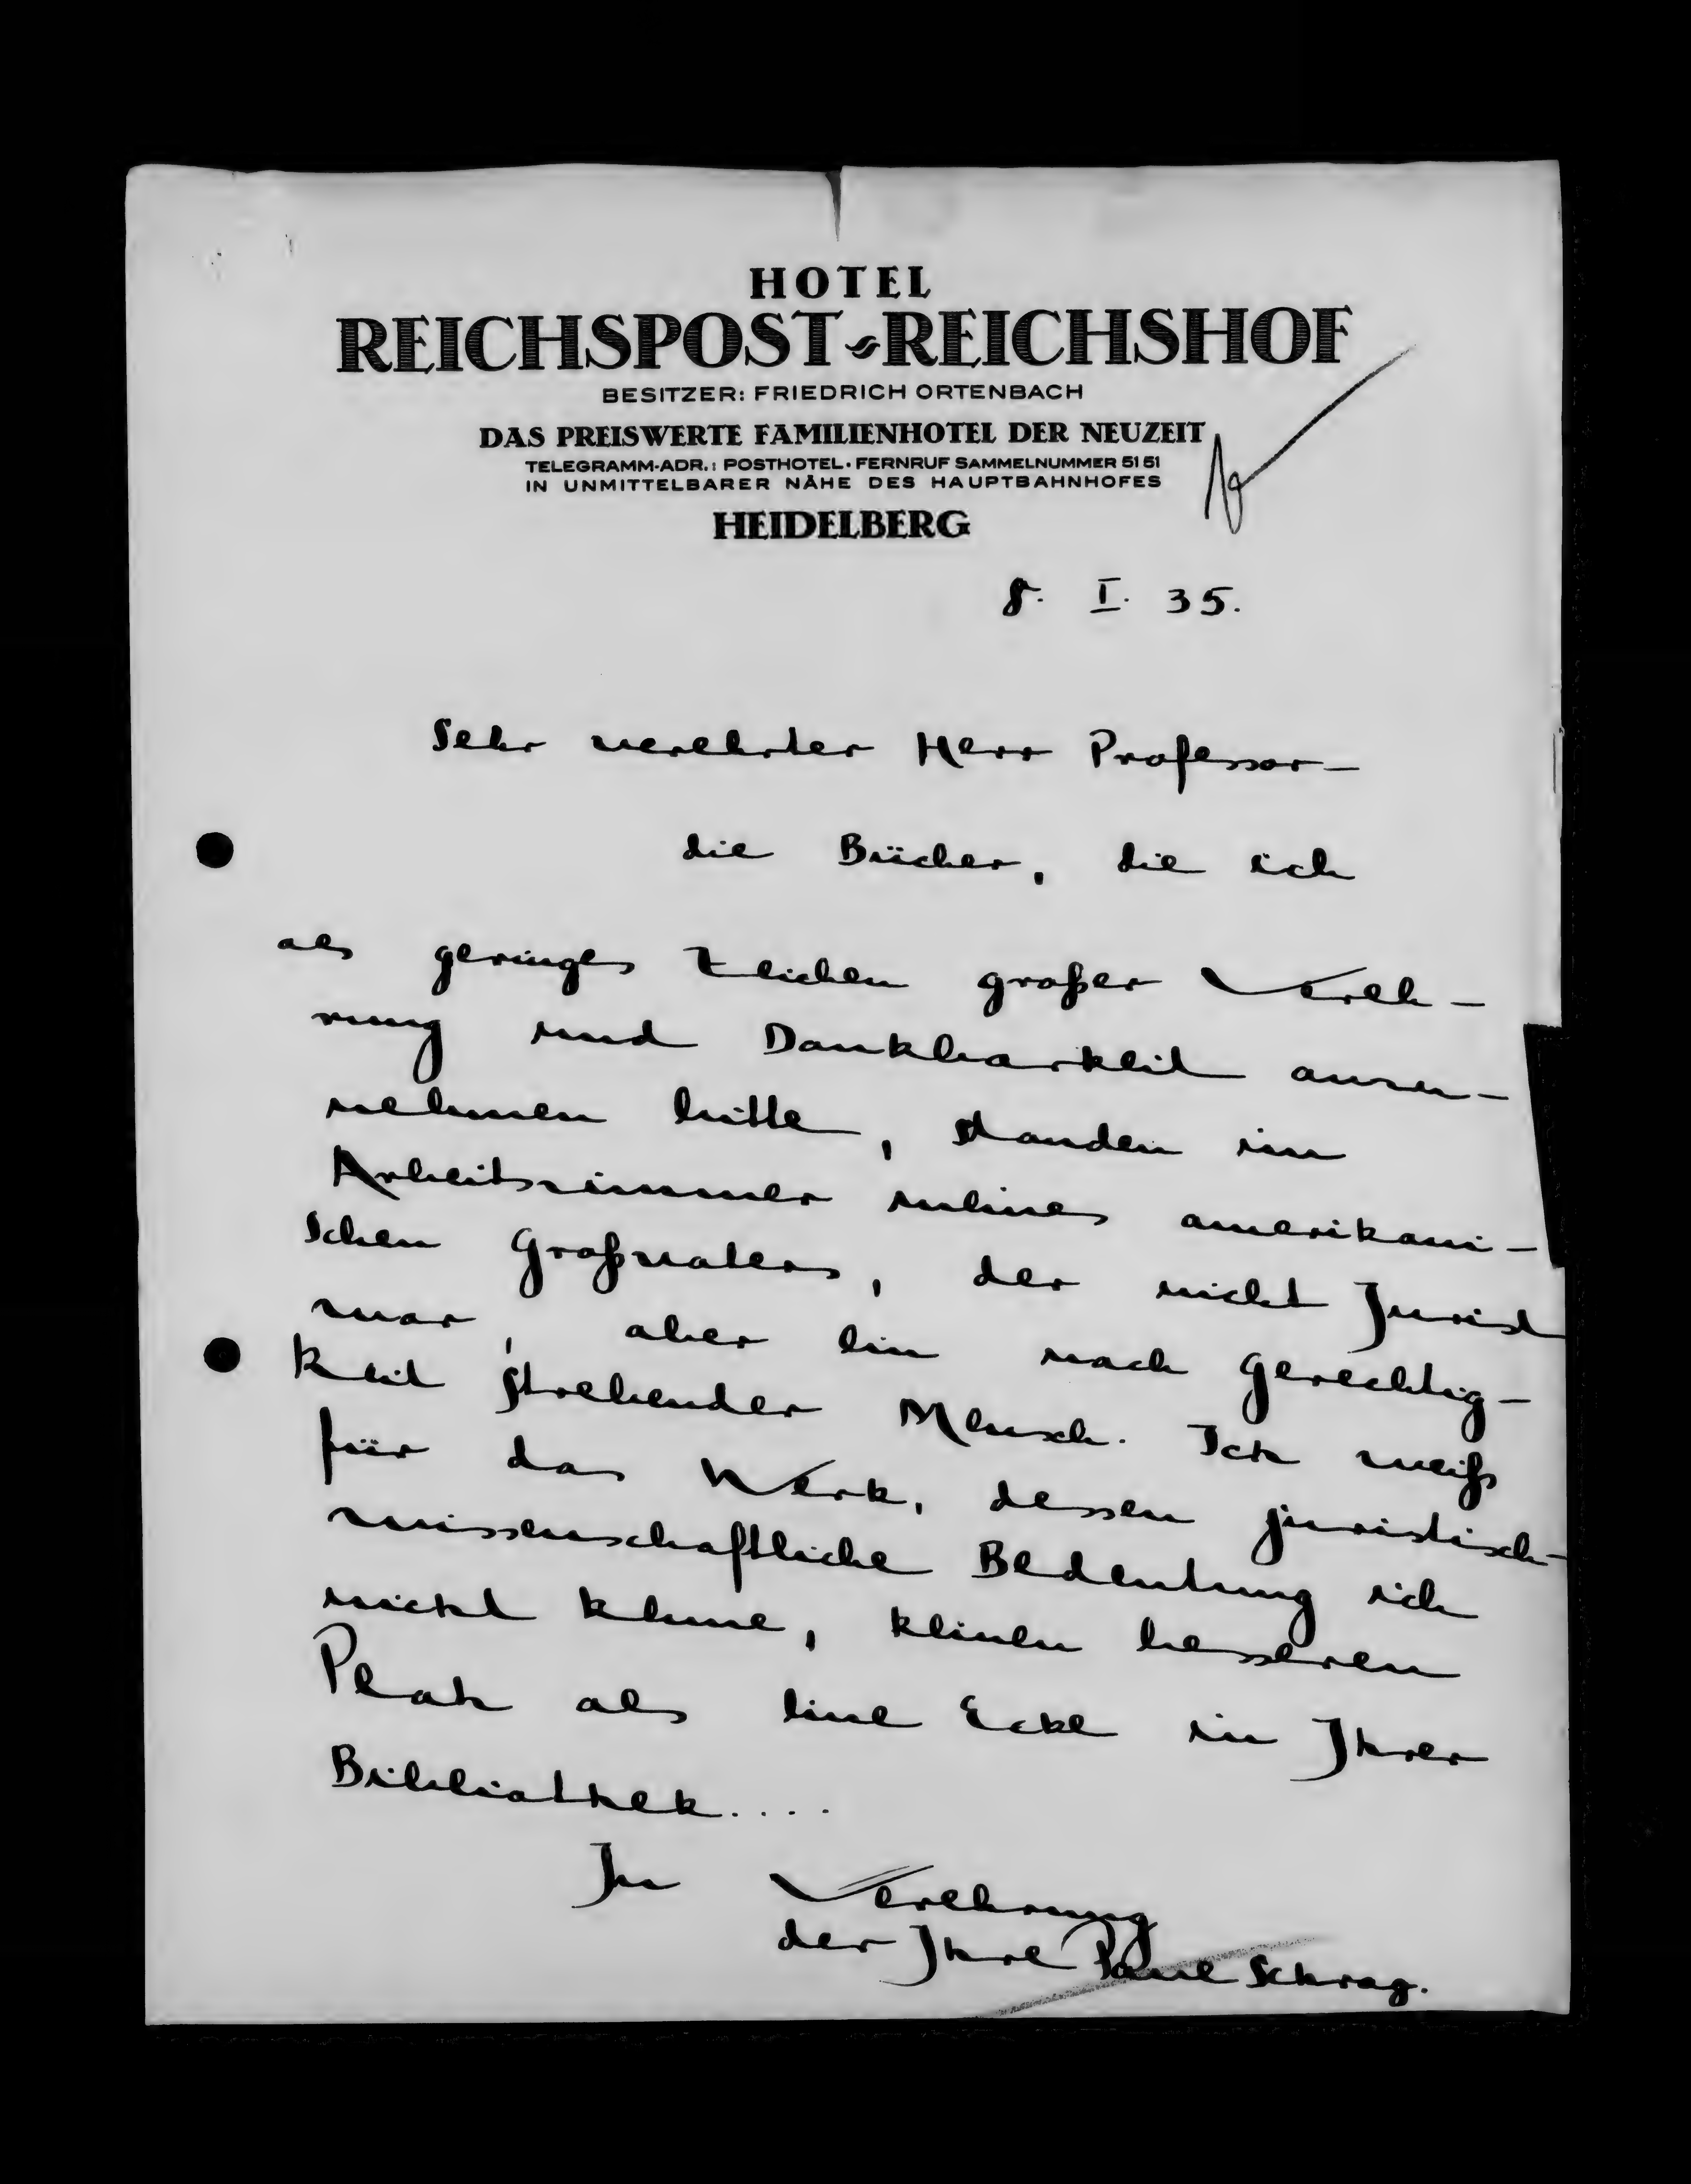 HOTEL
REICHSPOST-REICHSHOF
BESITZER: FRIEDRICH ORTENBACH
DAS PREISWERTE FAMILIENHOTEL DER NEUZEIT
TELEGRAMM-ADR.: POSTHOTEL · FERNRUF SAMMELNUMMER 5151
IN UNMITTELBARER NÄHE DES HAUPTBAHNHOFES
HEIDELBERG
8. I. 35.
Sehr verehrter Herr Professor –
die Bücher, die ich
als geringes Zeichen großer Vereh-
rung und Dankbarkeit anzu-
nehmen bitte, standen im
Arbeitszimmer meines amerikani-
schen Großvaters, der nicht Jurist
war, aber ein nach Gerechtig-
keit strebender Mensch. Ich weiß
für das Werk, dessen juristisch-
wissenschaftliche Bedeutung ich
nicht kenne, keinen besseren
Platz als eine Ecke in Ihrer
Bibliothek....
In Verehrung
der Ihre Paul Schrag.